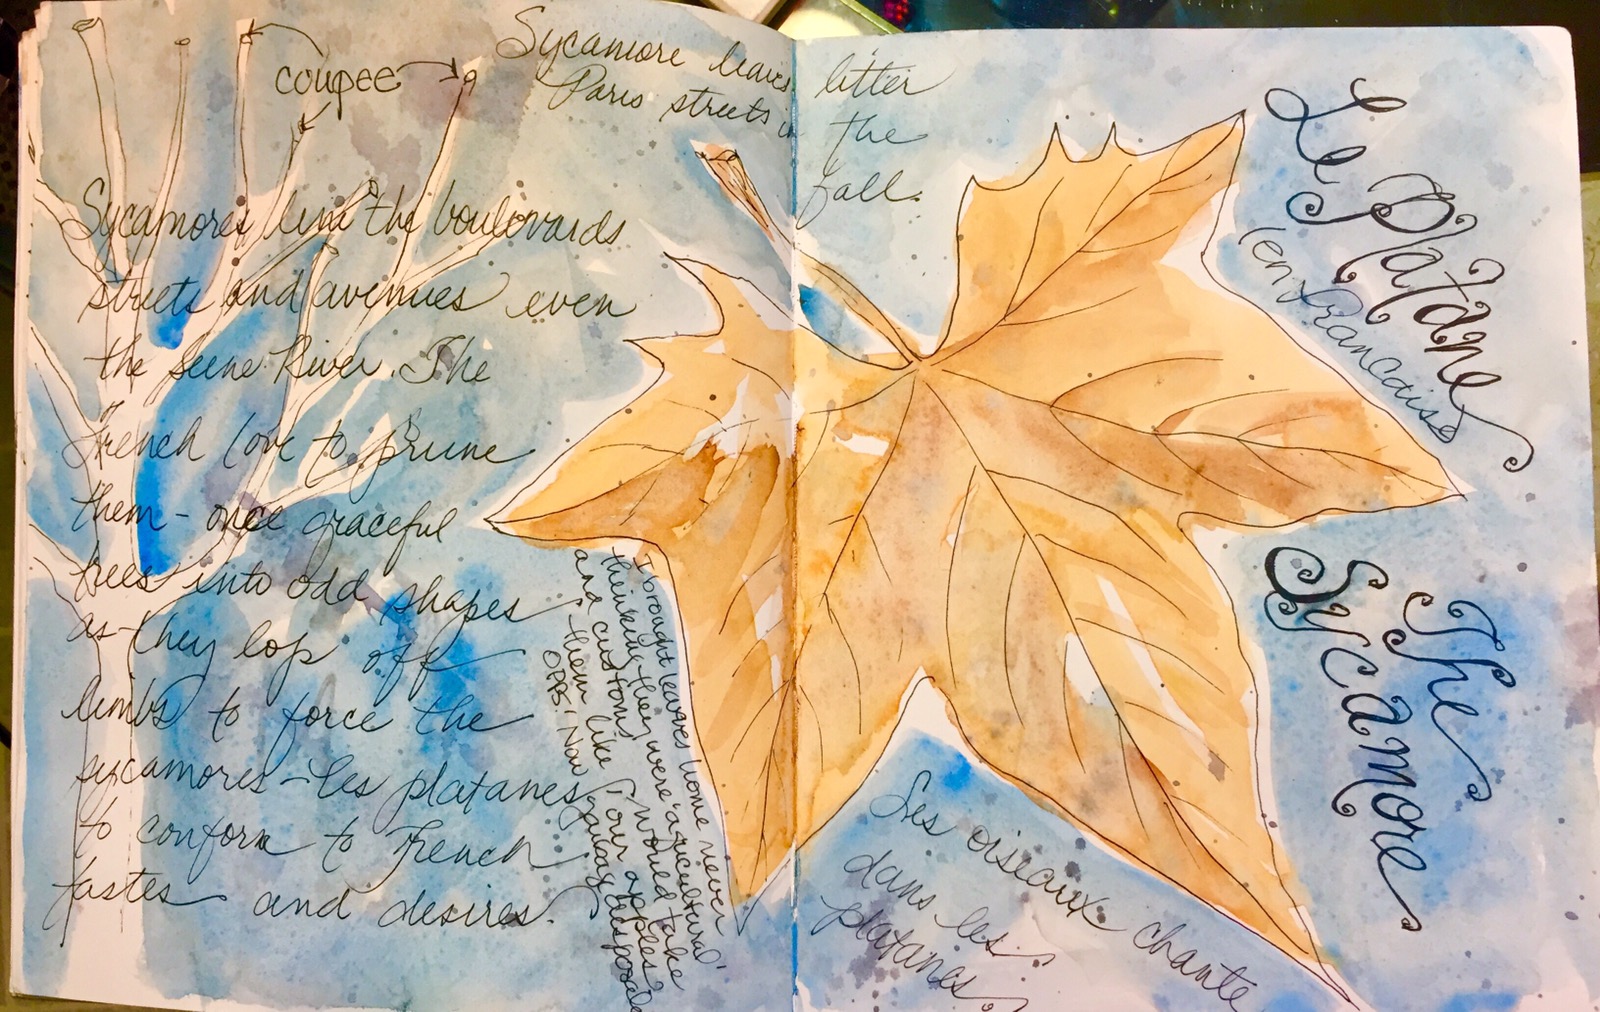 coupee
Sycamore leaves litter
Paris streets in the
fall.
Sycamores line the boulevards
streets and avenues even
the Seine River. The
French love to prune
them - once graceful
trees into odd shapes
as they lop off
limbs to force the
sycamores - les platanes
to conform to French
tastes and desires.
I brought leaves home never
thinking they were "agricultural"
and customs
them like I worried take
our apples?
OPPS! Now
Le Platane
(en francaise
The
Sycamore
Les oiseaux chante
dans les
platanes.